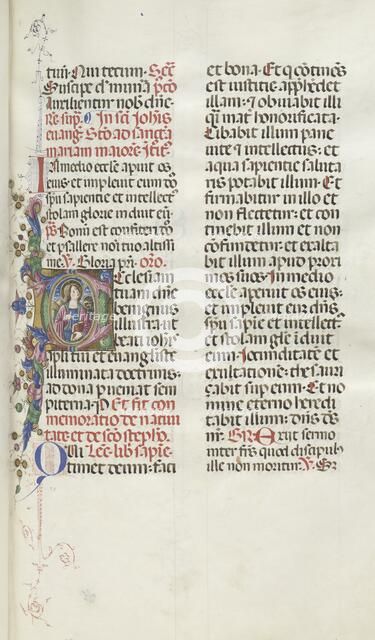 tuū. Qui tecum. Sect.
Suscipe dñe munera pro
Auxilientur nobis dñe
re sup. In sci johīs
euang. Stō ad sanctā
mariam maiorē. Itrē.
In medio ecclē apuit os
eius. et impleuit eum dñs
spū sapientie et intellect
stolam glorie induit eū.
ps Bonū est confiteri dño
et psallere noī tuo altissi
me. V. Gloria pri. Oro.
Ecclesiam
tuam dñe
benignus
illustra ut
beati johīs
apli tui et euangliste
illuminata doctrinis
ad dona pueniat sem
piterna. P Et fit com
memoratio de natiui
tate et de scō stepho.
Qui Lec. lib. sapie.
timet deum faci
et bona. Et q cōtinēs
est iustitie apphēdet
illam. et obuiabit illi
qsi mat honorificata.
Cibabit illum pane
uite et intellectus. et
aqua sapientie saluta
ris potabit illum. Et
firmabitur in illo et
non flectetur. et con
tinebit illum et non
confundetur. et exalta
bit illum apud proxi
mos suos. In medio
ecclē aperuit os eius.
et impleuit eum dñs
spū sapie et intellect.
et stolam glē iduit
eum. Jocunditate et
exultatione. thesauri
çabit sup eum. Et no
mine eterno heredi
tabit illum. dñs ds
nr. Gr Exijt sermo
inter frēs quod discipuls
ille non moritur. V. Sz
Heritage